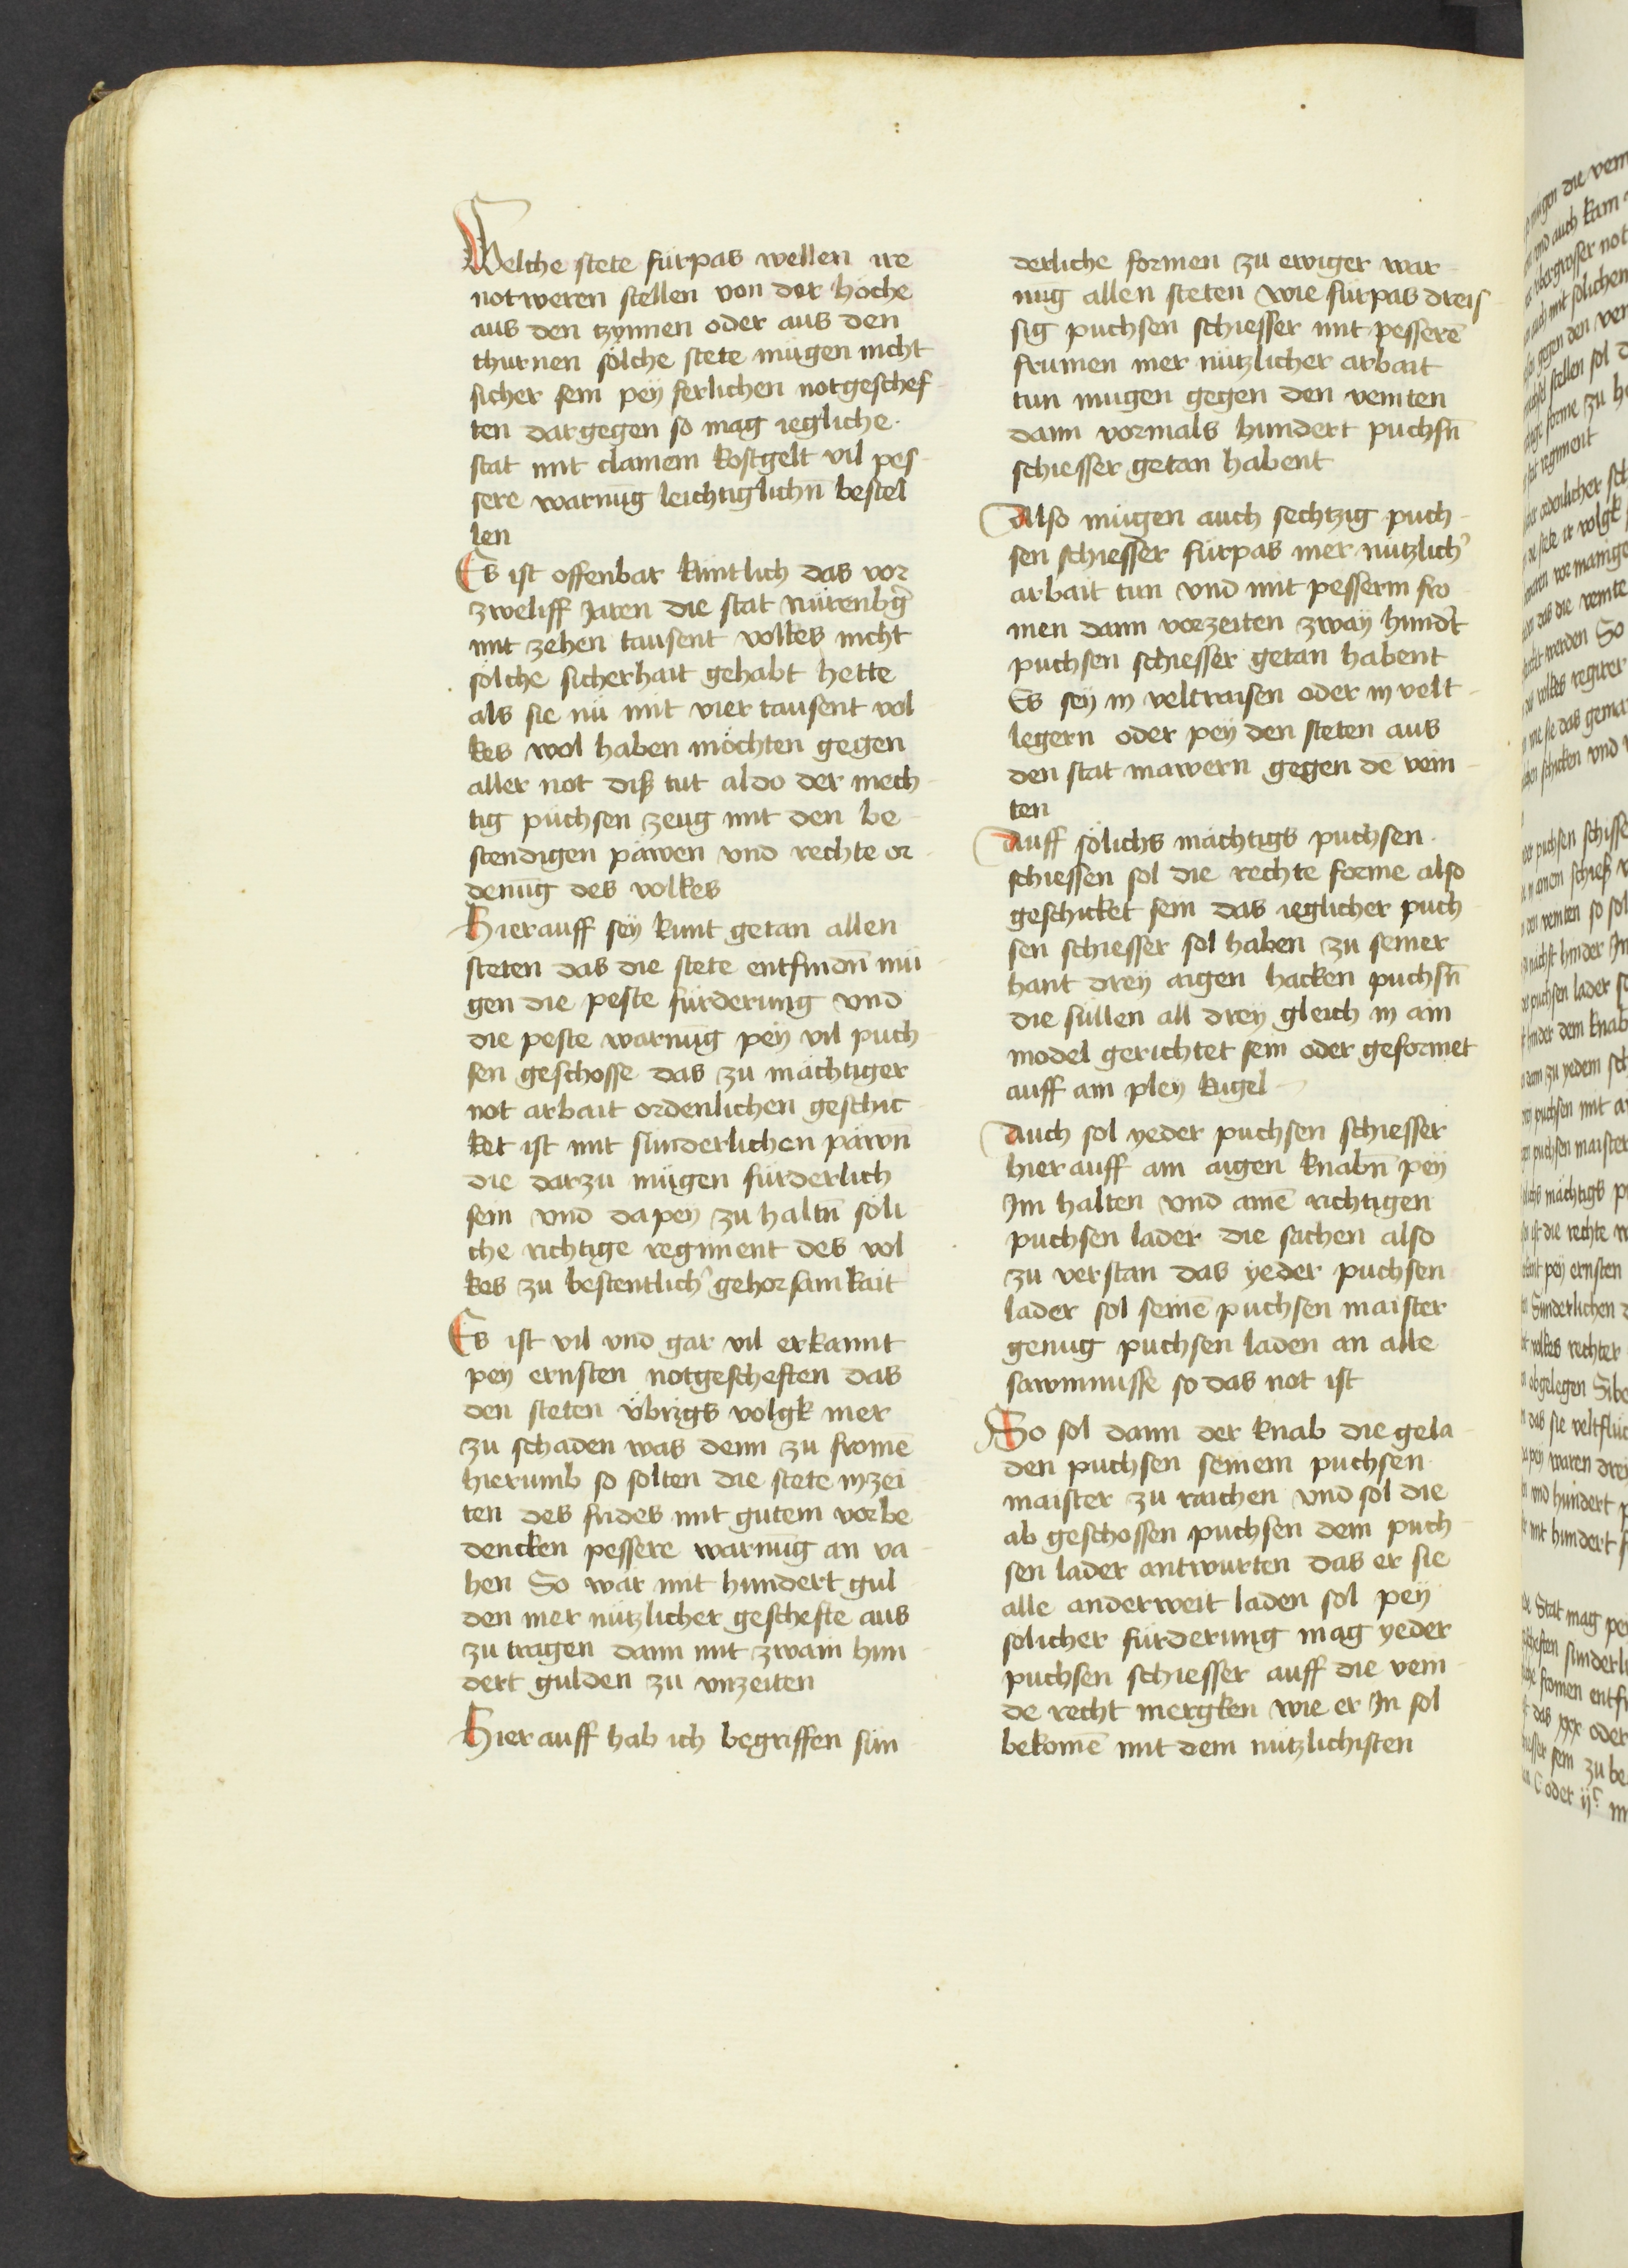 Welche stete fürpas wellen ire
notweren stellen von der höche
aus den tzynnen oder aus den
thurnen sölche stete mügen nicht
sicher sein peÿ ferlichen notgeschef-
ten dargegen so mag iegliche
stat mit clainem kostgelt vil pes-
sere warnūg leichtiglichn̄ bestel
len
Es ist offenbar küntlich das vor
zweliff Jaren die stat Nürenbḡ
mit zehen tausent volkes nicht
sölche sicherhait gehabt hette
als sie nü mit vier tausent vol
kes wol haben möchten gegen
aller not diß tut aldo der mech-
tig puchsen zeug mit den be-
stendigen päwen vnd rechte or-
denūg des volkes
Hierauff seÿ kunt getan allen
steten das die stete entfindn̄ mü-
gen die peste fürderung vnd
die peste warnūg peÿ vil puch-
sen geschosse das zu mächtiger
not arbait ordenlichen geschic-
ket ist mit sünderlichen päwn̄
die darzu mügen fürderlich
sein vnd dapey zu haltn̄ söli
che richtige regiment des vol
kes zu bestentlich' gehorsamkait
Es ist vil vnd gar vil erkannt
pey ernsten notgescheften das
den steten übrigs volgk mer
zu schaden was denn zu fromē
hierumb so solten die stete inzei
ten des frides mit gutem vorbe-
dencken pessere warnūg an va-
hen So wär mit hundert gul-
den mer nützlicher geschefte aus
zu tragen dann mit zwain hun-
dert gulden zu vnzeiten
Hierauff hab ich begriffen sün-
derliche formen zu ewiger war-
nūg allen steten wie fürpas dreis-
sig puchsen schiesser mit pesserē
frumen mer nützlicher arbait
tun mugen gegen den veinten
dann vormals hundert puchsn̄
schiesser getan habent
Also mügen auch sechtzig puch-
sen schiesser fürpas mer nützlich'
arbait tun vnd mit pesserm fro-
men dann vorzeiten zwaÿ hund't
puchsen schiesser getan habent
Es seÿ in veltraisen oder in velt-
legern oder peÿ den steten aus
den stat mawern gegen dē vein-
ten
Auff sölichs mächtigs puchsen
schiessen sol die rechte forme also
geschicket sein das ieglicher puch
sen schiesser sol haben zu seiner
hant dreÿ aigen hacken puchsn̄
die süllen all dreÿ gleich in ain
model gerichtet sein oder geformet
auff ain pleÿ kugel
Auch sol yeder puchsen schiesser
hierauff ain aigen knabn̄ peÿ
Im halten vnd ainē richtigen
puchsen lader die sachen also
zu verstan das ÿeder puchsen
lader sol seinē puchsen maister
genug puchsen laden an alle
sawmnusse so das not ist
So sol dann der knab die gela-
den puchsen seinem puchsen
maister zu raichen vnd sol die
ab geschossen puchsen dem puch-
sen lader antwurten das er sie
alle anderweit laden sol peÿ
solicher fürderung mag yeder
puchsen schiesser auff die vein-
de recht mergken wie er In sol
bekomē mit dem nutzlichisten